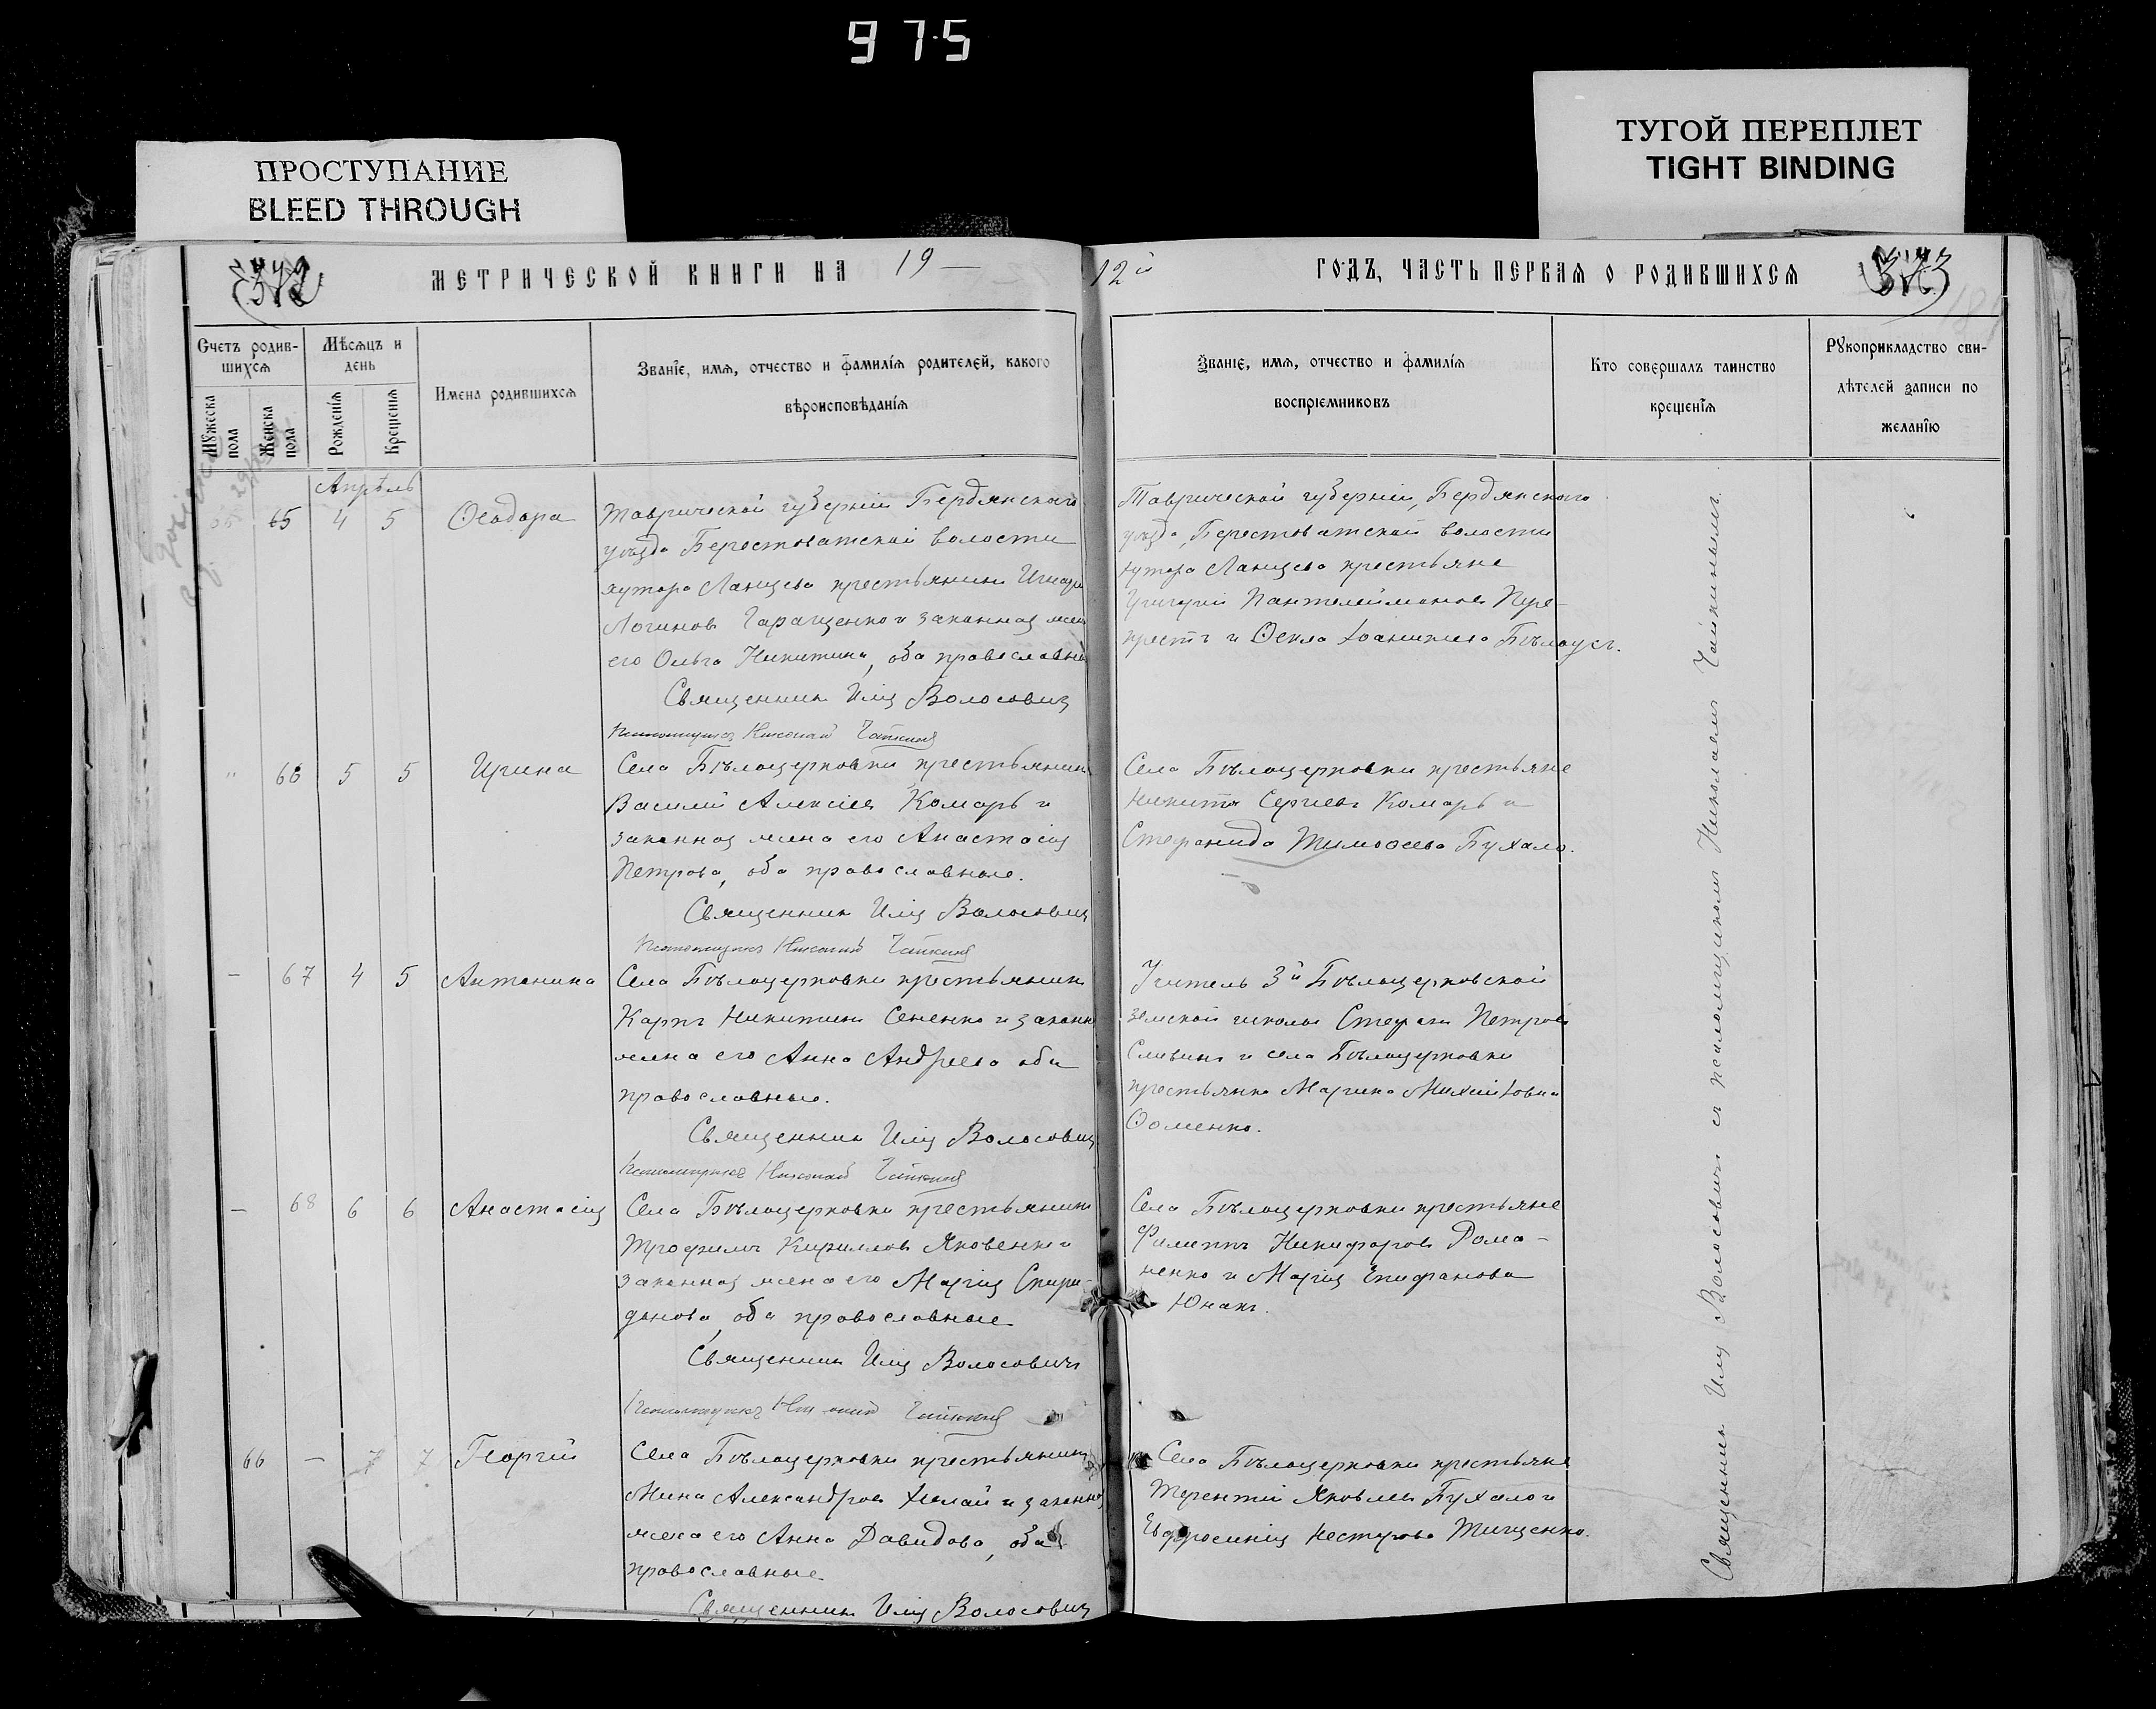 975
ПРОСТУПАНИЕ
BLEED THROUGH
ТУГОЙ ПЕРЕПЛЕТ
TIGHT BINDING
МЕТРИЧЕСКОЙ КНИГИ НА 19
12й ГОДЪ, ЧАСТЬ ПЕРВАЯ О РОДИВШИХСЯ
373
Счетъ родив-
шихся
Мѣсяцъ и
день
Мужеска
пола
Женска
пола
Рожденія
Крещенія
Имена родившихся
Званіе, имя, отчество и фамилія родителей, какого
вѣроисповѣданія
Званіе, имя, отчество и фамилія
воспріемниковъ
Кто совершалъ таинство
крещенія
Рукоприкладство сви-
дѣтелей записи по
желанію
Апрѣль
65 4 5 Ѳеодора
Таврической губерніи Бердянскаго
уѣзда Берестоватской волости
хутора Ланцева крестьянинъ
Логиновъ Геращенко и законная
его Ольга Никитина, оба православные
Священникъ Илія Волосовичъ
Псаломщикъ Николай Чайкинъ
Таврической губерніи, Бердянскаго
уѣзда, Берестоватской волости
хутора Ланцева крестьяне
Григорій Пантелеймоновъ Пере-
крестъ и Ѳекла Іоаникіева Бѣлоусъ.
" 66 5 5 Ирина
Села Бѣлоцерковки крестьянинъ
Василій Алексіевъ Комарь и
законная жена его Анастасія
Петрова, оба православные.
Священникъ Илія Волосовичъ
Псаломщикъ Николай Чайкинъ
Села Бѣлоцерковки крестьяне
Никита Сергіевъ Комарь и
Стефанида Тимоѳеева Бухало.
— 67 4 5 Антонина
Села Бѣлоцерковки крестьянинъ
Карпъ Никитинъ Сененко и законн
жена его Анна Андреева оба
православные.
Священникъ Илія Волосовичъ
Псаломщикъ Николай Чайкинъ
Учитель 3й Бѣлоцерковской
земской школы Стефанъ Петровъ
Сливинъ и села Бѣлоцерковки
крестьянка Марина Михайловна
Ѳоменко.
— 68 6 6 Анастасія
Села Бѣлоцерковки крестьянинъ
Трофимъ Кирилловъ Яковенко и
законная жена его Марія Спири-
донова, оба православные
Священникъ Илія Волосовичъ
Псаломщикъ Николай Чайкинъ
Села Бѣлоцерковки крестьяне
Филиппъ Никифоровъ Дома-
ненко и Марія Епифанова
Юнакъ.
66 — 7 7 Георгій
Села Бѣлоцерковки крестьянинъ
Мина Александровъ и законн
жена его Анна Давидова, оба
православные
Священникъ Илія Волосовичъ
Села Бѣлоцерковки крестьяне
Терентій Яковлевъ Бухало и
Евфросинія Нестерова Тищенко.
Священникъ Илія Волосовичъ съ псаломщикомъ Николаемъ Чайкинымъ.